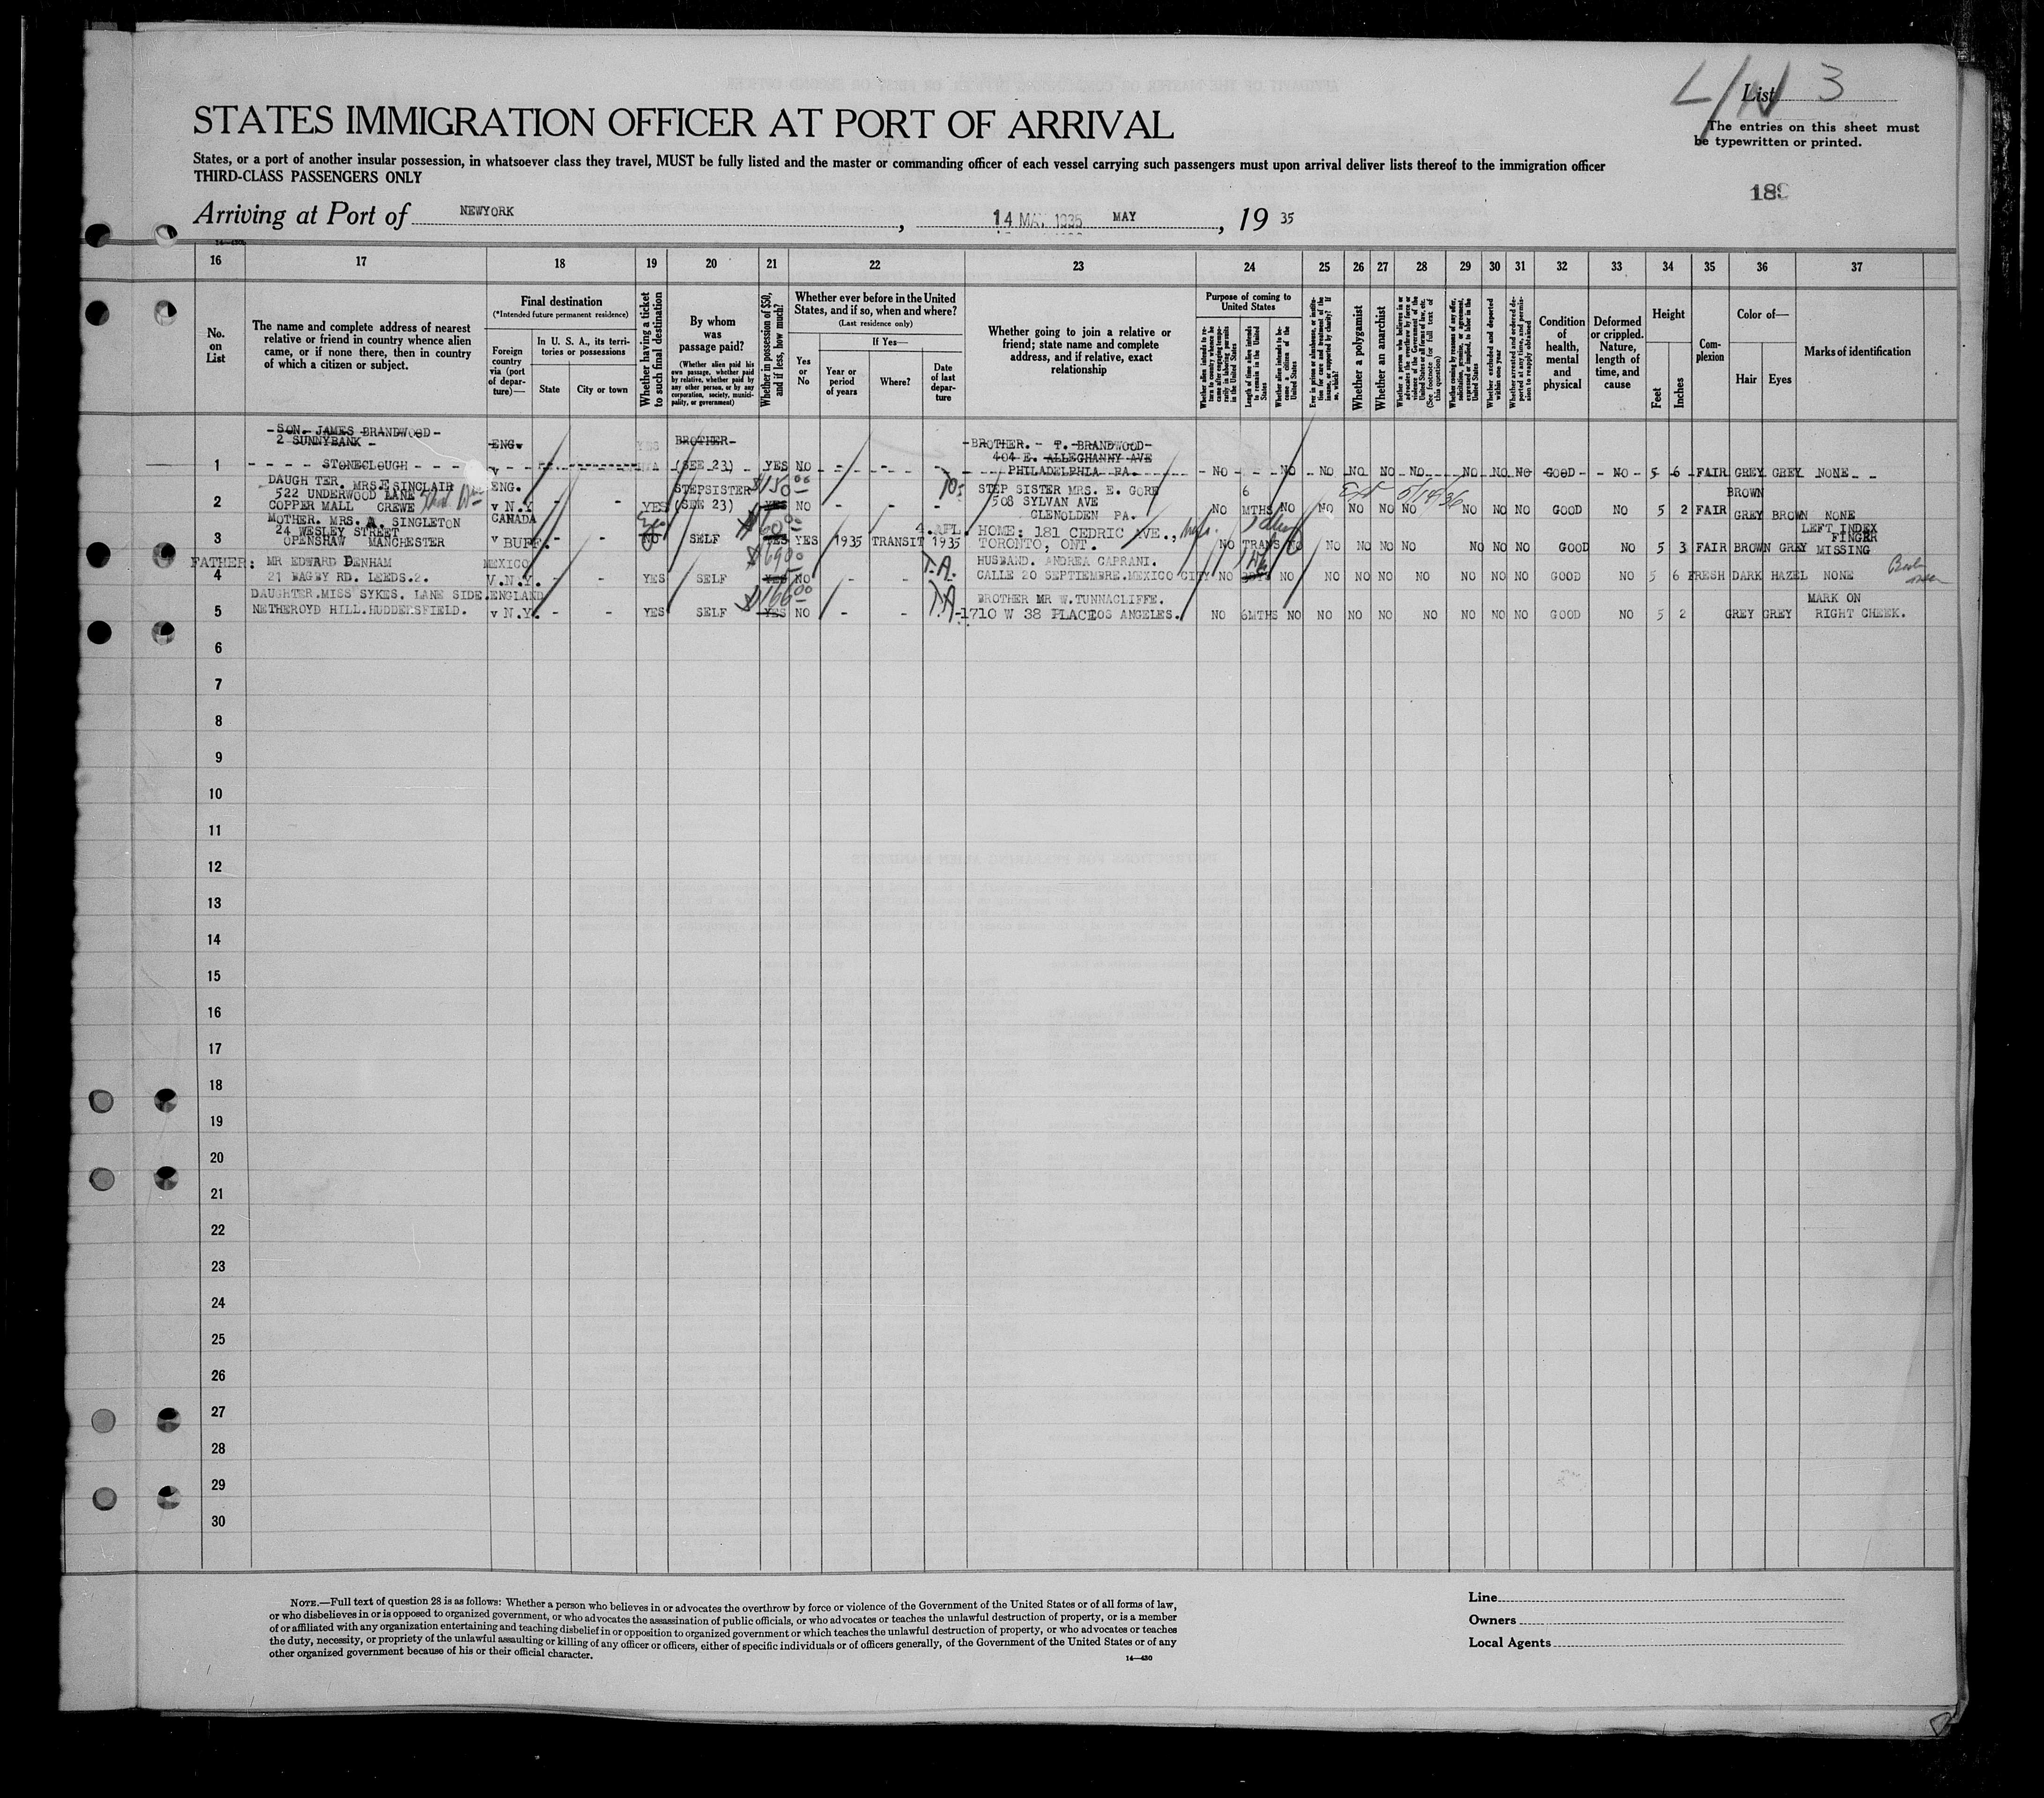 List 3
The entries on this sheet must
be typewritten or printed.
STATES IMMIGRATION OFFICER AT PORT OF ARRIVAL
States, or a port of another insular possession, in whatsoever class they travel, MUST be fully listed and the master or commanding officer of each vessel carrying such passengers must upon arrival deliver lists thereof to the immigration officer
THIRD-CLASS PASSENGERS ONLY
Arriving at Port of NEWYORK, 14 MAY 1935 MAY, 19 35
14—430
16 17 18 19 20 21 22 23 24 25 26 27 28 29 30 31 32 33 34 35 36 37
No. on List
The name and complete address of nearest relative or friend in country whence alien came, or if none there, then in country of which a citizen or subject.
Final destination
(*Intended future permanent residence)
Foreign country via (port of departure)—
In U. S. A., its territories or possessions
State
City or town
Whether having a ticket to such final destination
By whom was passage paid?
(Whether alien paid his own passage, whether paid by relative, whether paid by any other person, or by any corporation, society, municipality, or government)
Whether in possession of $50, and if less, how much?
Whether ever before in the United States, and if so, when and where?
(Last residence only)
Yes or No
If Yes—
Year or period of years
Where?
Date of last departure
Whether going to join a relative or friend; state name and complete address, and if relative, exact relationship
Purpose of coming to United States
Whether alien intends to return to country whence he came after engaging temporarily in laboring pursuits in the United States
Length of time alien intends to remain in the United States
Whether alien intends to become a citizen of the United States
Ever in prison or almshouse, or institution for care and treatment of the insane, or supported by charity? If so, which?
Whether a polygamist
Whether an anarchist
Whether a person who believes in or advocates the overthrow by force or violence of the Government of the United States or all forms of law, etc. (See footnote for full text of this question)
Whether coming by reasons of any offer, solicitation, promise, or agreement, expressed or implied, to labor in the United States
Whether excluded and deported within one year
Whether arrested and ordered deported at any time, and permission to reapply obtained
Condition of health, mental and physical
Deformed or crippled. Nature, length of time, and cause
Height
Feet
Inches
Complexion
Color of—
Hair
Eyes
Marks of identification
SON. JAMES BRANDWOOD
2 SUNNYBANK ENG. BROTHER BROTHER. - T. BRANDWOOD
404 E. ALLEGHANNY AVE
1 STONECLOUGH v (SEE 23) YES NO PHILADELPHIA PA. NO NO NO NO NO NO NO NO NO GOOD NO 5 6 FAIR GREY GREY NONE
DAUGH TER. MRS.E SINCLAIR ENG. STEPSISTER $150 00 STEP SISTER MRS. E. GORE 6 BROWN
522 UNDERWOOD LANE 508 SYLVAN AVE
2 COPPER MALL CREWE v N.Y YES (SEE 23) YES NO - - - GLENOLDEN PA. NO MTHS NO NO NO NO NO NO NO NO GOOD NO 5 2 FAIR GREY BROWN NONE
MOTHER. MRS. A. SINGLETON CANADA $60 00 LEFT INDEX
24 WESLEY STREET 4.APL HOME: 181 CEDRIC AVE., FINGER
3 OPENSHAW MANCHESTER v BUFF. - - NO SELF YES YES 1935 TRANSIT 1935 TORONTO, ONT. NO TRANS NO NO NO NO NO NO NO NO GOOD NO 5 3 FAIR BROWN GREY MISSING
FATHER: MR EDWARD DENHAM MEXICO $69 00 T.A. HUSBAND. ANDREA CAPRANI.
4 21 BAGBY RD. LEEDS.2. V.N.Y. - - YES SELF YES NO - - CALLE 20 SEPTIEMBRE.MEXICO CITY NO NO NO NO NO NO NO NO NO GOOD NO 5 6 FRESH DARK HAZEL NONE
DAUGHTER.MISS SYKES. LANE SIDE. ENGLAND $166 00 T.A. BROTHER MR W.TUNNACLIFFE. MARK ON
5 NETHEROYD HILL.HUDDERSFIELD. v N.Y. - - YES SELF YES NO - - - 1710 W 38 PLACE LOS ANGELES. NO 6MTHS NO NO NO NO NO NO NO NO GOOD NO 5 2 GREY GREY RIGHT CHEEK.
6
7
8
9
10
11
12
13
14
15
16
17
18
19
20
21
22
23
24
25
26
27
28
29
30
NOTE.—Full text of question 28 is as follows: Whether a person who believes in or advocates the overthrow by force or violence of the Government of the United States or of all forms of law,
or who disbelieves in or is opposed to organized government, or who advocates the assassination of public officials, or who advocates or teaches the unlawful destruction of property, or is a member
of or affiliated with any organization entertaining and teaching disbelief in or opposition to organized government or which teaches the unlawful destruction of property, or who advocates or teaches
the duty, necessity, or propriety of the unlawful assaulting or killing of any officer or officers, either of specific individuals or of officers generally, of the Government of the United States or of any
other organized government because of his or their official character.
14—430
Line
Owners
Local Agents